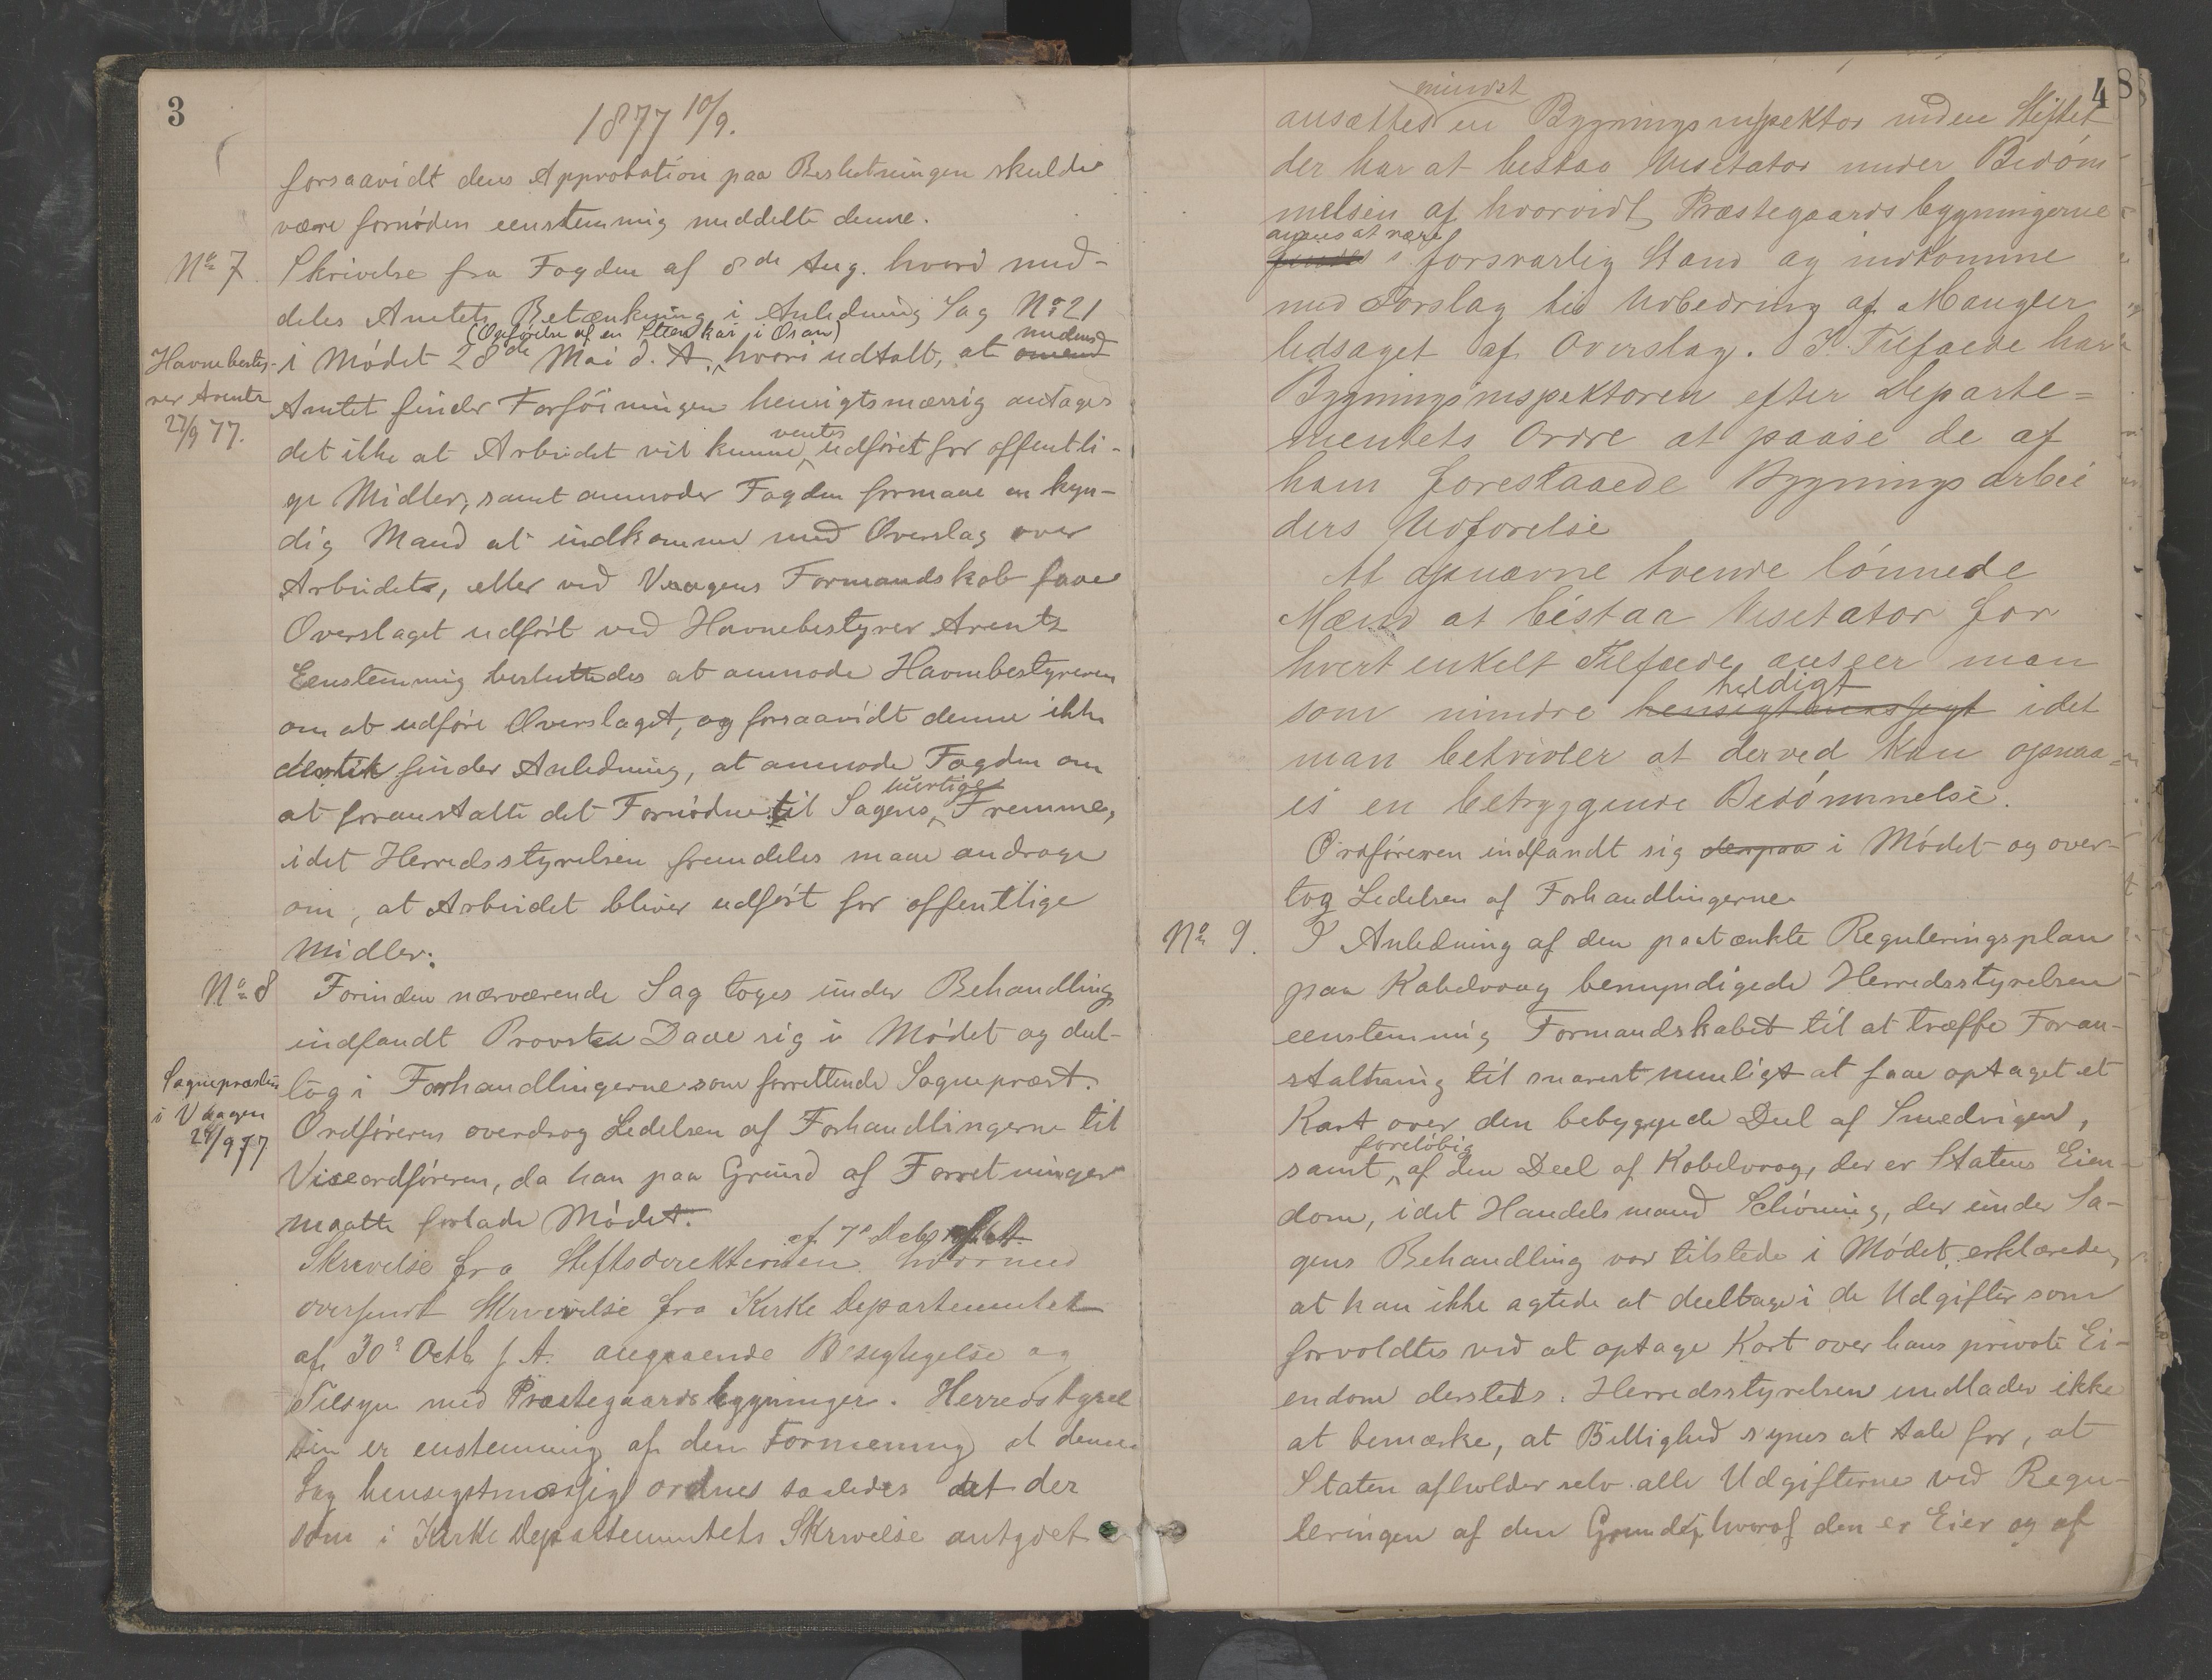 3
1877 10/9.
forsaavidt dens Approbation paa Beslutningen skulde
være fornøden eenstemmig meddelte denne.
No 7. Skrivelse fra Fogden af 8de Aug. hvori med-
deles Amtets Betænkning i Anledning Sag No 21
(Opførelse af en Steenkar i Osan) medens
Havnebesty- i Mødet 28de Mai d. A., hvori udtalt, at omend
rer Arentz Amtet finder Forføiningen hensigtsmæssig antages
27/9 77. det ikke at Arbeidet vil kunne ventes udføret for offentli-
ge Midler, samt anmoder Fogden formaae en kyn-
dig Mand at indkomme med Overslag over
Arbeidet, eller ved Vaagens Formandskab faae
Overslaget udført ved Havnebestyrer Arentz
Eenstemmig besluttedes at anmode Havnebestyreren
om at udføre Overslaget, og forsaavidt denne ikke
dertil finder Anledning, at anmode Fogden om
at foranstalte det Fornødne til Sagens hurtige Fremme,
idet Herredsstyrelsen fremdeles maae andrage
om, at Arbeidet bliver udført for offentlige
Midler.
No 8 Forinden nærværende Sag toges under Behandling
indfandt Provsten Daae sig i Mødet og del-
Sognepræsten tog i Forhandlingerne som forrettende Sognepræst.
i Vaagen Ordføreren overdrog Ledelsen af Forhandlingerne til
27/9 77 Viceordføreren, da han paa Grund af Forretninger
maatte forlade Mødet.
Skrivelse fra Stiftsdirektionen af 7de hvormed
oversendt Skrivelse fra Kirke Departementet
af 30? Octb f. A. angaaende Besigtigelse og
Tilsyn med Præstegaardsbygninger. Herredsstyrel
sen er enstemmig af den Formening at denne
Sag hensigtsmæssigt ordnes saaledes at der
som i Kirke Departementets Skrivelse antydet
4
8
ansættes mindst en Bygningsinspektor inden Stiftet
der har at bistaa Visitator under Bedøm
melsen af hvorvidt Præstegaards bygningerne
findes ansees at være i forsvarlig Stand og indkomme
med Forslag til Udbedring af Mangler
ledsaget af Overslag. I Tilfælde har
Bygningsinspektoren efter Departe=
mentets Ordre at paase de af
ham forestaaede Bygningsarbei
ders Udførelse
At opnævne tvende lønnede
Mænd at bistaa Visitator for
hvert enkelt Tilfælde anseer man
som mindre hensigtsmæssigt heldigt idet
man betvivler at derved kan opnaa=
es en betryggende Bedømmelse.
Ordføreren indfandt sig derpaa i Mødet og over-
tog Ledelsen af Forhandlingerne
No 9. I Anledning af den paatænkte Reguleringsplan
paa Kabelvaag bemyndigede Herredsstyrelsen
eenstemmig Formandskabet til at træffe Foran-
staltning til snarest muligt at faae optaget et
Kart over den bebyggede Deel af Smedvigen,
samt foreløbig af den Deel af Kabelvaag, der er Statens Eien-
dom, idet Handelsmand Schøning, der under Sa-
gens Behandling var tilstede i Mødet, erklærede,
at han ikke agtede at deeltage i de Udgifter som
forvoldtes ved at optage Kart over hans private Ei-
endom dersteds. Herredsstyrelsen undlader ikke
at bemærke, at Billighed synes at tale for, at
Staten afholder selv alle Udgifterne ved Regu-
leringen af den Grund, hvoraf den er Eier og af